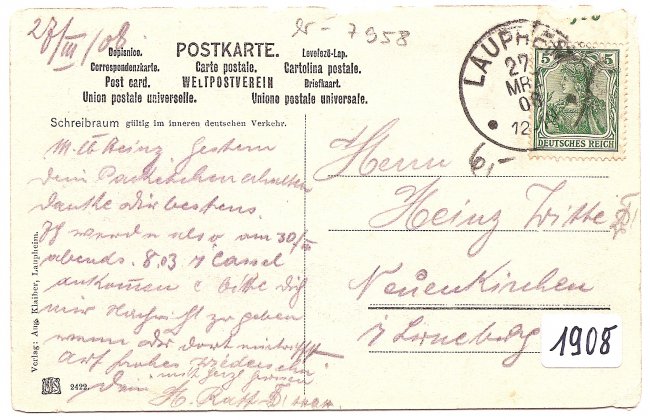 27/III/08
7958
POSTKARTE.
Dopisnice.
Levelező-Lap.
Correspondenzkarte.
Carte postale.
Cartolina postale.
Post card.
WELTPOSTVEREIN
Briefkaart.
Union postale universelle.
Unione postale universale.
LAUPHE
27
MRZ
08
12
5
5
DEUTSCHES REICH
6,-
Schreibraum gültig im inneren deutschen Verkehr.
M. lb Heinz Gestern
dein Packetchen erhalten
danke dir bestens.
Ich werde also am 30/III
abends. 8.03 i Cassel
ankommen & bitte Dich
mir Nachricht zu geben
wann du dort eintriffst
Auf frohes Wiedersehn
Dein H.
Herrn
Heinz Witte
Neuenkirchen
1908
Verlag: Aug. Klaiber, Laupheim.
2422.